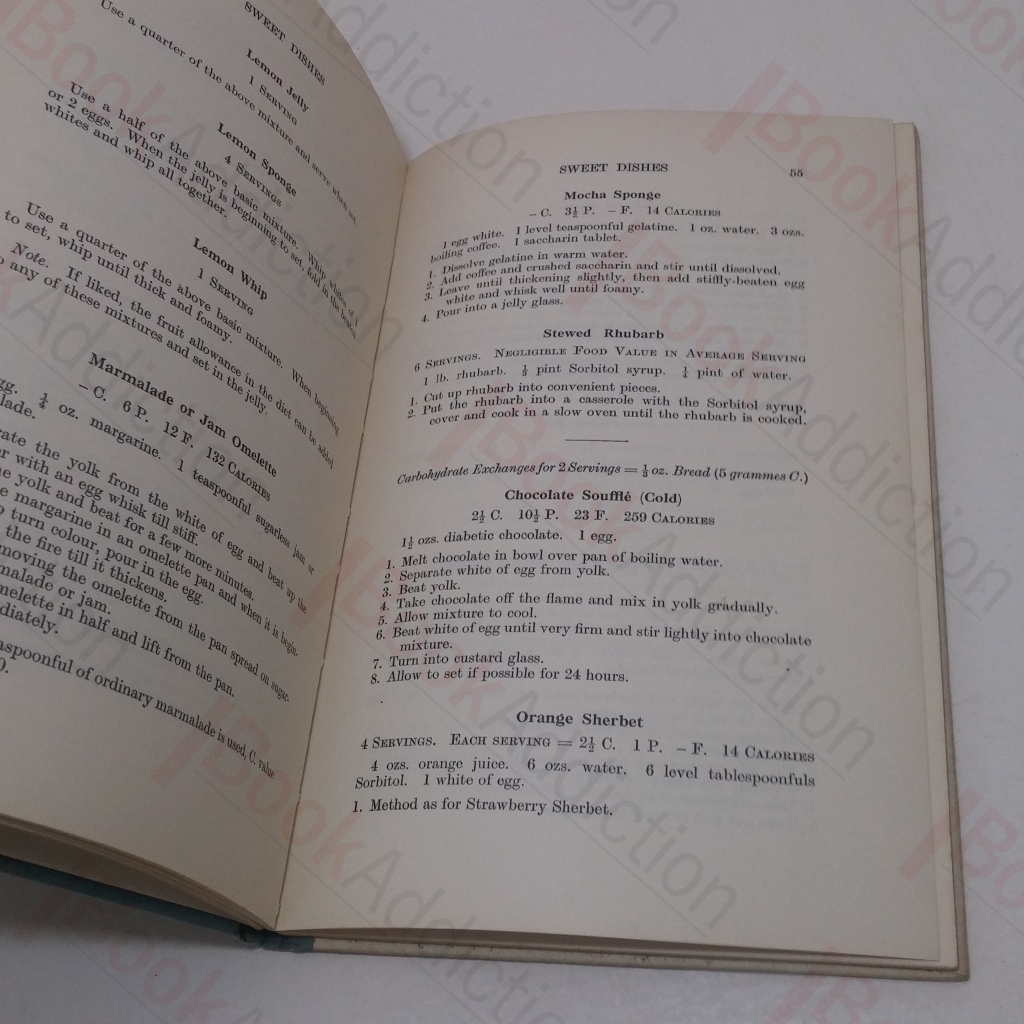 SWEET DISHES
Use a quarter of the above mixture and serve when set.
Lemon Jelly
1 SERVING
Lemon Sponge
4 SERVINGS
Use a half of the above basic mixture. Whip whites of 1
or 2 eggs. When the jelly is beginning to set, fold in the beaten
whites and whip all together.
Lemon Whip
1 SERVING
Use a quarter of the above basic mixture. When beginning
to set, whip until thick and foamy.
Note. If liked, the fruit allowance in the diet can be added
to any of these mixtures and set in the jelly.
Marmalade or Jam Omelette
– C. 6 P. 12 F. 132 CALORIES
egg. ¼ oz. margarine. 1 teaspoonful sugarless jam or
the yolk from the white of egg and beat up the
with an egg whisk till stiff.
yolk and beat for a few more minutes.
margarine in an omelette pan and when it is begin-
turn colour, pour in the egg.
the fire till it thickens.
the omelette from the pan spread on sugar-
or jam.
omelette in half and lift from the pan.
of ordinary marmalade is used, C. value
SWEET DISHES 55
Mocha Sponge
– C. 3½ P. – F. 14 CALORIES
1 egg white. 1 level teaspoonful gelatine. 1 oz. water. 3 ozs.
boiling coffee. 1 saccharin tablet.
1. Dissolve gelatine in warm water.
2. Add coffee and crushed saccharin and stir until dissolved.
3. Leave until thickening slightly, then add stiffly-beaten egg
white and whisk well until foamy.
4. Pour into a jelly glass.
Stewed Rhubarb
6 SERVINGS. NEGLIGIBLE FOOD VALUE IN AVERAGE SERVING
1 lb. rhubarb. pint Sorbitol syrup. pint of water.
1. Cut up rhubarb into convenient pieces.
2. Put the rhubarb into a casserole with the Sorbitol syrup,
cover and cook in a slow oven until the rhubarb is cooked.
Carbohydrate Exchanges for 2 Servings = ⅓ oz. Bread (5 grammes C.)
Chocolate Soufflé (Cold)
2½ C. 10½ P. 23 F. 259 CALORIES
1½ ozs. diabetic chocolate. 1 egg.
1. Melt chocolate in bowl over pan of boiling water.
2. Separate white of egg from yolk.
3. Beat yolk.
4. Take chocolate off the flame and mix in yolk gradually.
5. Allow mixture to cool.
6. Beat white of egg until very firm and stir lightly into chocolate
mixture.
7. Turn into custard glass.
8. Allow to set if possible for 24 hours.
Orange Sherbet
4 SERVINGS. EACH SERVING = 2½ C. 1 P. – F. 14 CALORIES
4 ozs. orange juice. 6 ozs. water. 6 level tablespoonfuls
Sorbitol. 1 white of egg.
1. Method as for Strawberry Sherbet.
BookAddiction